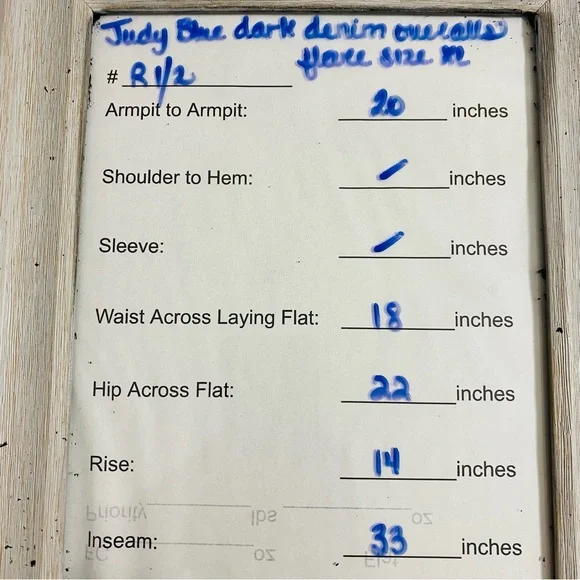 Judy Blue dark denim overalls
flare size M
# R 1/2
Armpit to Armpit: 20 inches
Shoulder to Hem: / inches
Sleeve: / inches
Waist Across Laying Flat: 18 inches
Hip Across Flat: 22 inches
Rise: 14 inches
Priority lbs oz
Inseam: 33 inches
FC oz Flat